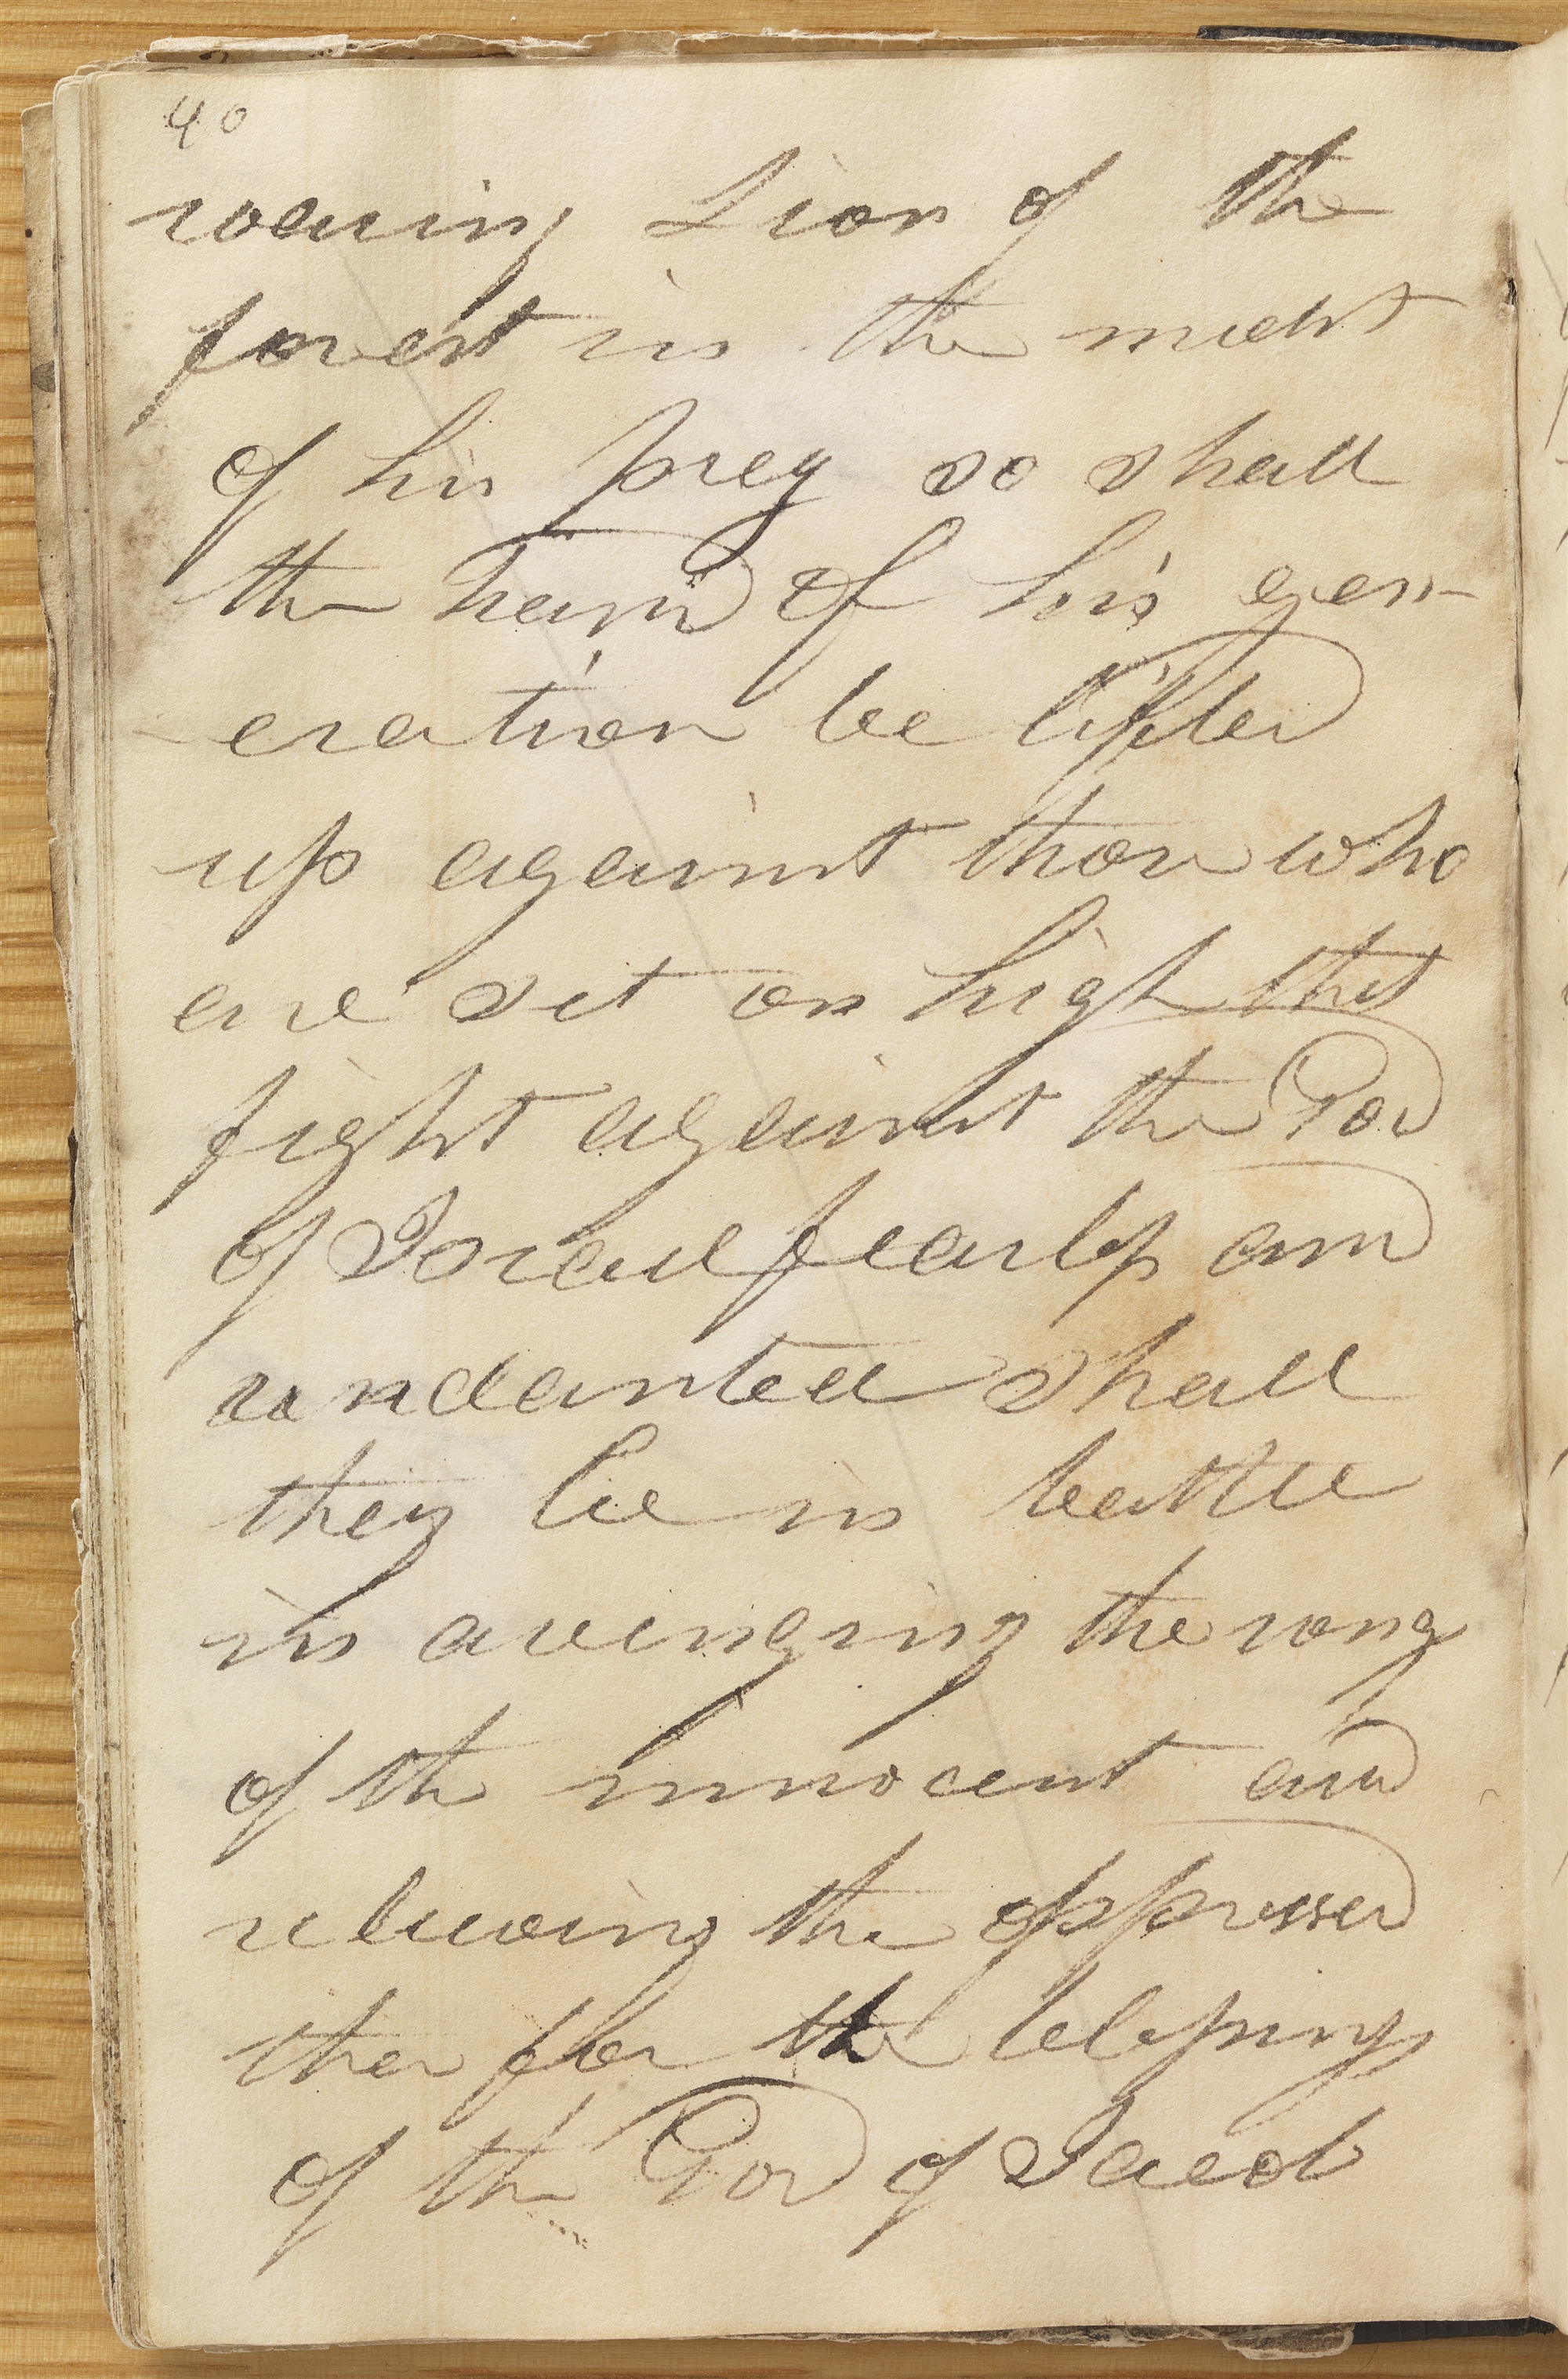 40
roaring Lion of the
forest in the midst
of his prey so shall
the hand of his gen-
eration be lifted
up against those who
are set on high that
fight against the God
of Israel fearless and
undanted shall
they be in battle
in avenging the rong
of the innocent and
relieving the oppressed
ther for the blessing
of the God of Jacob